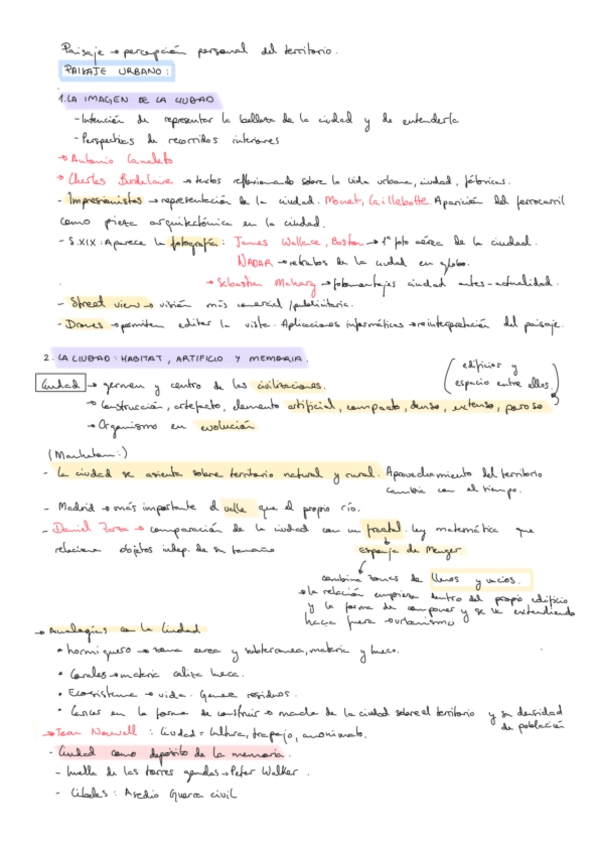 Paisaje → percepción personal del territorio.
PAISAJE URBANO:
1. LA IMAGEN DE LA CIUDAD
- Intención de representar la belleza de la ciudad y de entenderla
- Perspectivas de recorridos interiores
→ Antonio Canaleto
→ Charles Burdelaire → textos reflexionando sobre la vida urbana, ciudad, fábricas.
- Impresionistas → representación de la ciudad. Monet, Caillebotte. Aparición del ferrocarril
como pieza arquitectónica en la ciudad.
- S.XIX: Aparece la fotografía: James Wallace, Boston → 1ª foto aérea de la ciudad.
NADAR → retratos de la ciudad en globo.
→ Sebastian → fotomontajes ciudad antes-actualidad.
- Street view → visión más comercial / publicitaria.
- Drones → permiten editar la vista. Aplicaciones informáticas → reinterpretación del paisaje.
2. LA CIUDAD: HABITAT, ARTIFICIO Y MEMORIA.
Ciudad → germen y centro de las civilizaciones.
(edificios y
espacio entre ellos)
→ Construcción, artefacto, elemento artificial, compacto, denso, extenso, poroso
→ Organismo en evolución
(Manhatan:)
- La ciudad se asienta sobre territorio natural y rural. Aprovechamiento del territorio
cambia con el tiempo.
- Madrid → más importante el valle que el propio río.
- Daniel → comparación de la ciudad con un fractal. ley matemática que
relaciona objetos indep. de su tamaño
Esponja de Menger
combina zonas de llenos y vacios.
→ la relación empieza dentro del propio edificio
y la forma de componer y se va extendiendo
hacia fuera → urbanismo
→ Analogías con la Ciudad
• hormiguero → zona aerea y subterranea, materia y hueco.
• Corales → materia caliza hueca.
• Ecosistema → vida. Genera residuos.
• Cancer en la forma de construir → mancha de la ciudad sobre el territorio y su densidad
de población
→ Jean Nouvell: Ciudad = Cultura, trabajo, anonimato.
- Ciudad como depósito de la memoria.
- huella de las torres gemelas → Peter Walker.
- : Asedio Guerra civil